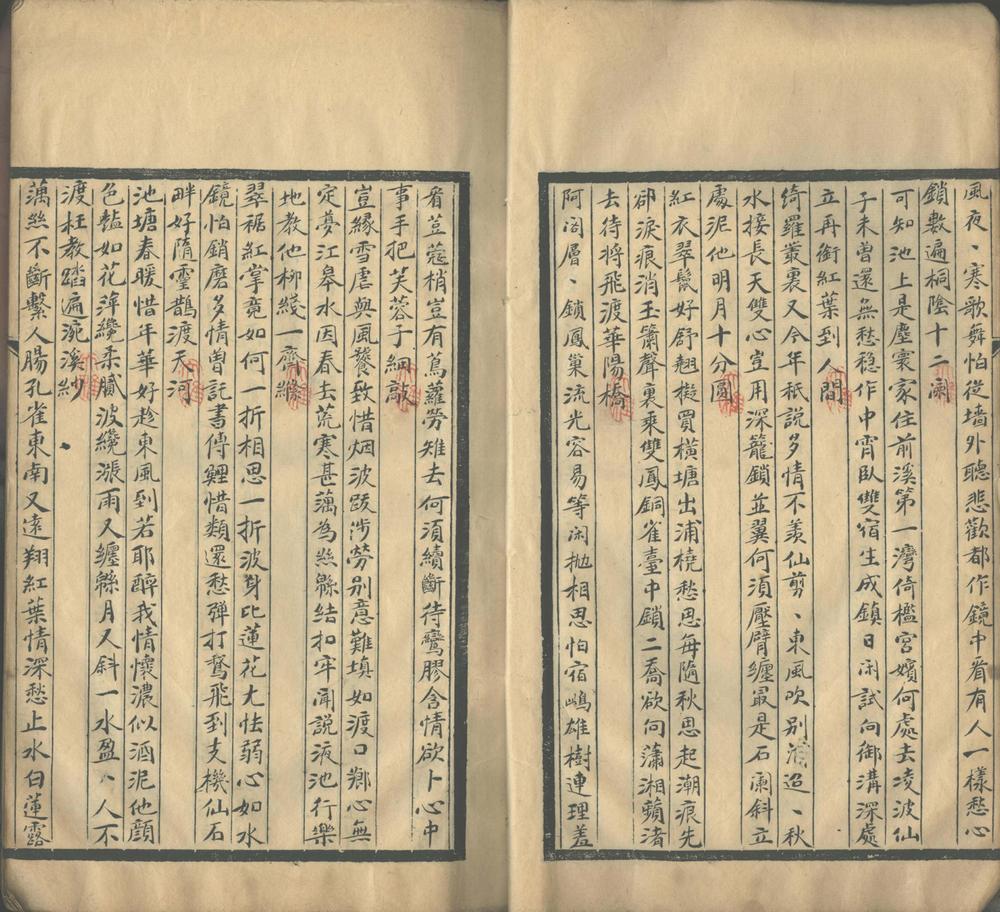 風夜、寒歌舞怕從墙外聽悲歡都作鏡中看有人一樣愁心
鎖數遍桐陰十二闌
可知池上是塵寰家住前溪第一灣倚檻宮嬪何處去凌波仙
子未曾還無愁稳作中宵臥雙宿生成鎮日闲試向御溝深處
立再銜紅葉到人間
綺羅叢裏又今年秖說多情不羨仙剪、東風吹别浦迢、秋
水接長天雙心豈用深籠鎖並翼何須壓臂纏最是石闌斜立
處泥他明月十分圓
紅衣翠鬟好舒翹擬買橫塘出浦橈愁思每隨秋思起潮痕先
郤淚痕消玉簫聲裏乘雙鳳銅雀臺中鎖二喬欲向瀟湘蘋渚
去待將飛渡華陽橋
阿阁層、鎖鳳巢流光容易等闲抛相思怕宿鳩雄樹連理羞
看荳蔻梢豈有蔦蘿勞雉去何須續斷待鸞膠含情欲卜心中
事手把芙蓉子細敲
豈緣雪虐與風饕致惜烟波跋涉勞别意難填如渡口鄉心無
定夢江皋水因春去荒寒甚藕為絲緜结扣牢聞說液池行樂
地教他柳綫一齊縧
翠裾紅掌竟如何一折相思一折波身比蓮花尤怯弱心如水
鏡怕銷磨多情曾託書傅鯉惜類還愁彈打鶩飛到支機仙石
畔好隋靈鵲渡天河
池塘春暖惜年華好趁東風到若耶醉我情懷濃似酒泥他顏
色豔如花萍纔柔膩波纔漲雨又纏緜月又斜一水盈、人不
渡枉教踏遍涴溪紗
藕絲不斷繫人腸孔雀東南又遠翔紅葉情深愁止水白蓮露